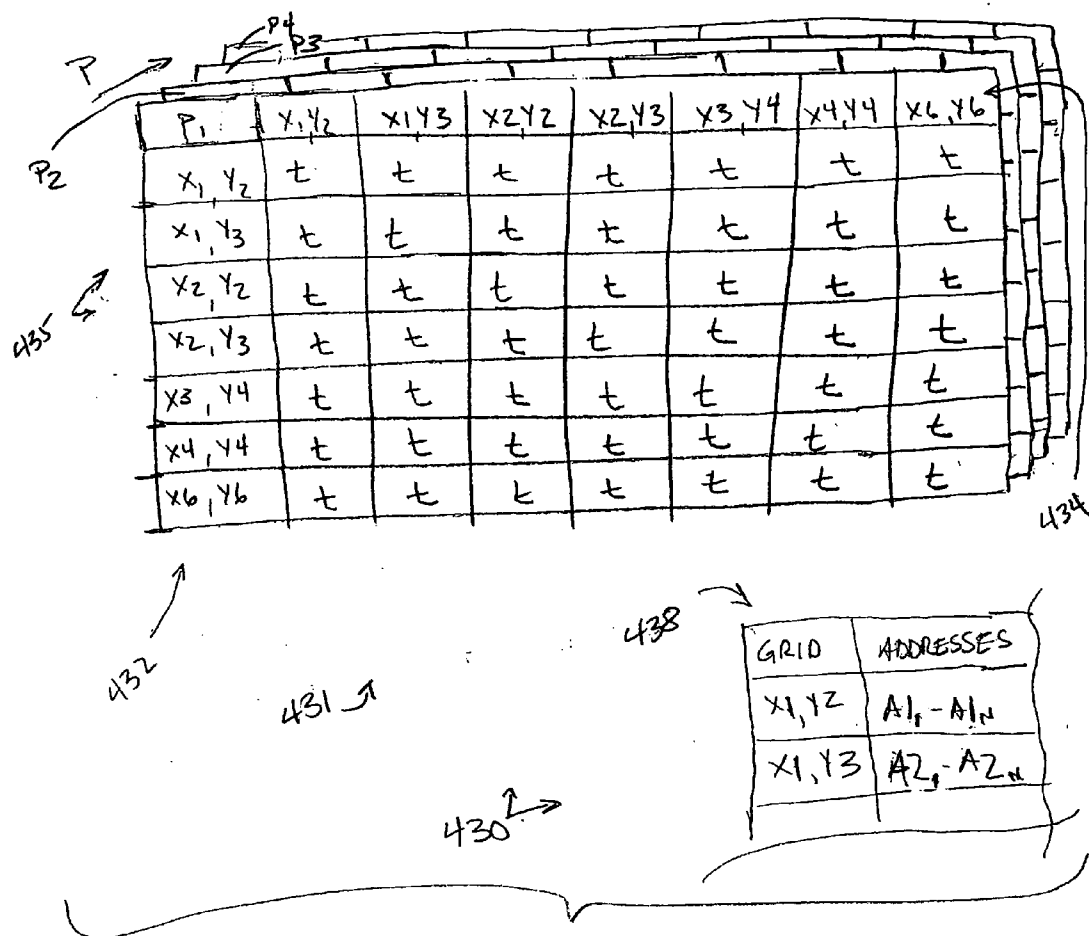 P4
P3
P
P2
P1 X1,Y2 X1,Y3 X2,Y2 X2,Y3 X3,Y4 X4,Y4 X6,Y6
X1,Y2 t t t t t t t
X1,Y3 t t t t t t t
X2,Y2 t t t t t t t
X2,Y3 t t t t t t t
X3,Y4 t t t t t t t
X4,Y4 t t t t t t t
X6,Y6 t t t t t t t
435
434
432
431
438
GRID ADDRESSES
X1,Y2 A1₁-A1N
X1,Y3 A2₁-A2N
430